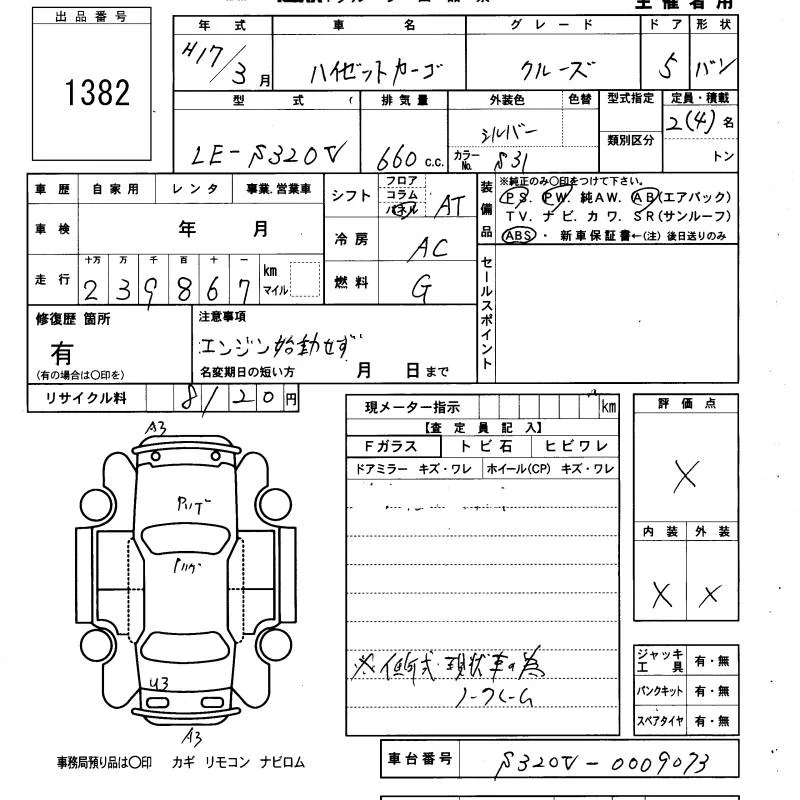 主催者用
出品番号
1382
年式 車名 グレード ドア 形状
H17/3月 ハイゼットカーゴ クルーズ 5 バン
型式 排気量 外装色 色替 型式指定 定員・積載
LE-S320V 660 c.c. シルバー 類別区分 2(4)名
カラーNo. S31 トン
車歴 自家用 レンタ 事業.営業車
車検 年 月
走行 十万 万 千 百 十 一 km マイル
2 3 9 8 6 7
シフト フロア コラム パネル AT
冷房 AC
燃料 G
装備品 ※純正のみ○印をつけて下さい。
PS. PW. 純AW. AB(エアバック)
TV. ナビ. カワ. SR(サンルーフ)
ABS ・ 新車保証書←(注) 後日送りのみ
セールスポイント
修復歴 箇所
有
(有の場合は○印を)
注意事項
エンジン始動せず
名変期日の短い方 月 日まで
リサイクル料 8/20円
現メーター指示 km
【査定員記入】
Fガラス トビ石 ヒビワレ
ドアミラー キズ・ワレ ホイール(CP) キズ・ワレ
※低年式・現状車の為
ノークレーム
評価点
X
内装 外装
X X
ジャッキ工具 有・無
パンクキット 有・無
スペアタイヤ 有・無
A3
U3
A3
事務局預り品は○印 カギ リモコン ナビロム
車台番号 S320V-0009073